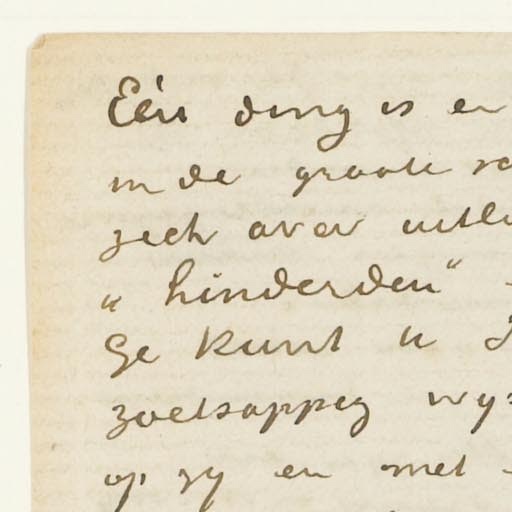 Eén ding is er
in de groote
zich over uitl
„hinderden"
Ge kunt u
zoetsappig wys
op zy en met